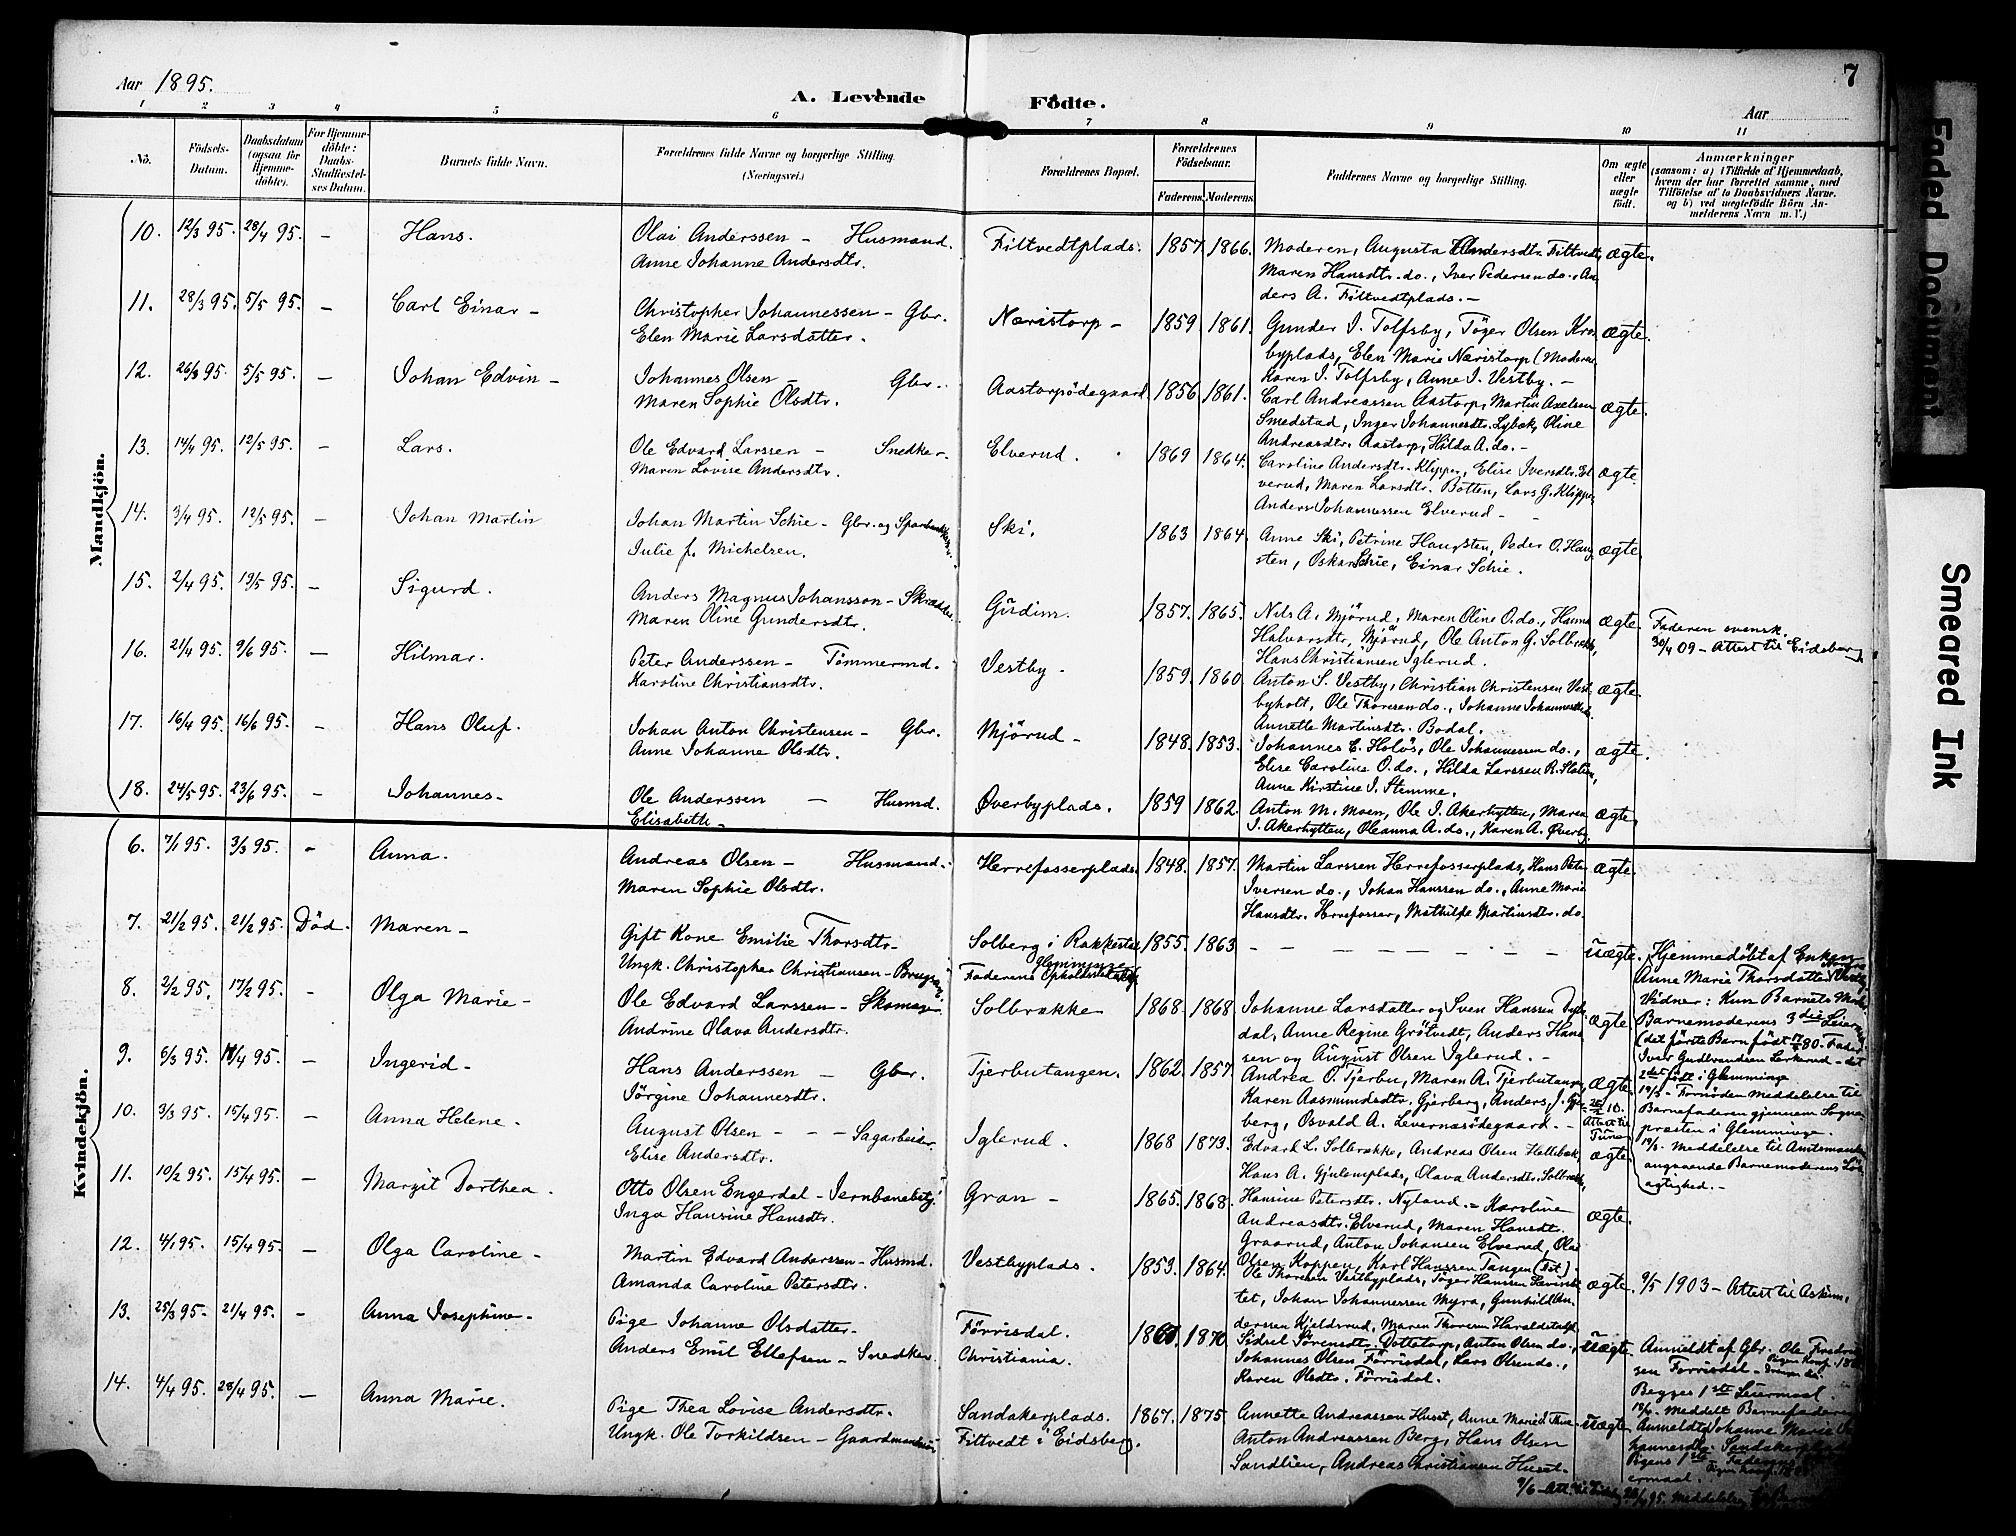 Aar 1895.
A. Levende Fødte.
Aar
7
1 2 3 4 5 6 7 8 9 10 11
No. Fødsels-Datum. Daabsdatum (ogsaa for Hjemmedöbte). For Hjemmedöbte: Daabs-Stadfæstelses Datum. Barnets fulde Navn. Forældrenes fulde Navne og borgerlige Stilling. (Næringsvei.) Forældrenes Bopæl. Forældrenes Födselsaar. Faderens. Moderens. Faddernes Navne og borgerlige Stilling. Om ægte eller uægte født. Anmærkninger (saasom: a) i Tilfælde af Hjemmedaab, hvem der har forrettet samme, med Tilföielse af to Daabsvidners Navne, og b) ved uægtefödte Börn Anmelderens Navn m. V.)
Mandkjön.
10. 12/3 95. 28/4 95. – Hans. Olai Anderssen – Husmand. Filtvedtplads. 1857. 1866. Moderen, Augusta Andersdtr. Filtvedt, ægte.
Anne Johanne Andersdtr. Maren Hansdtr. do., Iver Pedersen do., An-
ders A. Filtvedtplads. –
11. 28/3 95. 5/5 95. – Carl Einar – Christopher Johannessen – Gbr. Næristorp – 1859. 1861. Gunder I. Tolfsby, Töger Olsen Kro- ægte.
Elen Marie Larsdatter. byplads, Elen Marie Næristorp (Moderen
Karen I. Tolfsby, Anne I. Vestby. –
12. 26/3 95. 5/5 95. – Johan Edvin – Johannes Olsen – Gbr. Aastorpödegaard 1856 1861. Carl Andreassen Aastorp, Martin Axelsen ægte.
Maren Sophie Olsdtr. Smedstad, Inger Johannesdtr. Lybæk, Oline
Andreasdtr. Aastorp, Hilda A. do. –
13. 14/4 95. 12/5 95. – Lars. Ole Edvard Larssen – Snedker. Elverud. 1869 1864. Caroline Andersdtr. Klipper, Elise Iversdtr. El- ægte.
Maren Lovise Andersdtr. verud, Maren Larsdtr. Botten, Lars G. Klipper,
Anders Johannessen Elverud –
14. 3/4 95. 12/5 95. – Johan Martin Johan Martin Schie – Gbr. og Ski. 1863 1864. Anne Ski, Petrine Haugsten, Peder O. Haug- ægte.
Julie f. Michelsen. sten, Oskar Schie, Einar Schie.
15. 2/4 95. 19/5 95. – Sigurd. Anders Magnus Johansson – Gudim. 1857. 1865. Nils A. Mjörud, Maren Oline O. do., Hanna ægte. Faderen svensk.
Maren Oline Gundersdtr. Halvorsdtr. Mjörud, Ole Anton G. Solbrække, 30/4 09 – Attest til Eidsberg
Hans Christiansen Iglerud.
16. 21/4 95. 9/6 95. – Hilmar. Peter Anderssen – Tömmermd. Vestby – 1859. 1860. Anton S. Vestby, Christian Christensen Vest- ægte.
Karoline Christiansdtr. byholt, Ole Thoresen do., Johanne
Annette Martinsdtr. Bodal.
17. 16/4 95. 16/6 95. – Hans Oluf. Johan Anton Christensen – Gbr. Mjörud – 1848. 1853. Johannes E. Holös, Ole Johannessen do., ægte.
Anne Johanne Olsdtr. Elise Caroline O. do., Hilda Larssen R.
Anne Kirstine I. Stemme.
18. 24/5 95. 23/6 95. – Johannes – Ole Anderssen – Husmd. Øverbyplads. 1859 1862. Anton M. Moen, Ole I. Akerhytten, Maren ægte.
Elisabeth – I. Akerhytten, Oleanna A. do., Karen A. Øverby.
Kvindekjön.
6. 7/1 95. 3/3 95. – Anna. Andreas Olsen – Husmand. Herrefosserplads. 1848. 1857. Martin Larssen Herrefosserplads, Hans Peter ægte.
Maren Sophie Olsdtr. Iversen do., Johan Hanssen do., Anne Marie
Hansdtr. Herrefosser, Mathilde Martinsdtr. do.
7. 21/2 95. 21/2 95. Död. Maren – Gift Kone Emilie Thorsdtr. Solberg i Rakkestad 1855. 1863 – – – – – – – uægte. Hjemmedöbt af Enken
Ungk. Christopher Christiansen – Glemminge Faderens Opholdssted Anne Marie Thorsdatter
Vidner: Kun Barnets Moder.
Barnemoderens 3die Leierm.
(det förste Barn födt 80. Fader
Iver Gudbrandsen Lekerud – det
2det födt i Glemminge
19/3 – Fornöden Meddelelse til
Barnefaderen gjennem Sogne-
præsten i Glemminge.
19/3. Meddelelse til Amtmanden
angaaende Barnemoderens Lös-
agtighed. –
8. 2/2 95. 17/2 95. – Olga Marie – Ole Edvard Larssen – Skomager Solbrække 1868. 1868. Johanne Larsdatter og Sven Hanssen ægte.
Andrine Olava Andersdtr. dal, Anne Regine Grötvedt, Anders Hans-
sen og August Olsen Iglerud. –
9. 6/3 95. 95. – Ingerid – Hans Anderssen – Gbr. Tjerbutangen. 1862. 1857. Andrea O. Tjerbu, Maren A. Tjerbutangen, ægte.
Jörgine Johannesdtr. Karen Aasmundsdtr. Gjerberg, Anders J. Gjer-
berg, Osvald A. Levernæsödegaard. – Attest til Tune
10. 3/3 95. 15/4 95. – Anna Helene – August Olsen – – – Sagarbeider Iglerud. 1868 1873. Edvard L. Solbrække, Andreas Olsen Hellebæk, ægte.
Elise Andersdtr. Hans A. Gjulemplads, Olava Andersdtr. Solbræk
11. 10/2 95. 15/4 95. – Margit Dorthea. Otto Olsen Engerdal – Jernbanebetj. Gran – 1865. 1868. Hansine Petersdtr. Nyland. – Karoline ægte.
Inga Hansine Hansdtr. Andreasdtr. Elverud, Maren Hansdtr.
Graarud, Anton Johansen Elverud, Olai
Olsen Koppen, Karl Hanssen Tangen
12. 4/1 95. 15/4 95. – Olga Caroline – Martin Edvard Anderssen – Husmd. Vestbyplads. 1853. 1864. Ole Thoresen Vestbyplads, Töger Hanssen ægte. 9/5 1903 – Attest til Askim.
Amanda Caroline Petersdtr. tet, Johan Johannessen Myra, Gunhild An-
derssen Kjeldsrud, Maren Thoresen
13. 25/3 95. 21/4 95. – Anna Josephine – Pige Johanne Olsdatter – Förrisdal. 1870. Sidsel Sörensdtr. Dottetorp, Anton Olsen do., uægte. Anmeldt af Gbr. Ole Fredrik-
Anders Emil Ellefsen – Snedker. Christiania. Johannes Olsen Förrisdal, Lars Olsen do., sen Forrisdal –
Karen Olsdtr. Förrisdal. Begges 1ste Leiermaal
Meddelt Barnefaderen
14. 4/4 95. 28/4 95. – Anna Marie. Pige Thea Lovise Andersdtr. Sandakerplads. 1867. 1875 Annette Andreassen Huset, Anne Marie uægte. Anmeldt Johanne Marie Jo-
Ungk. Ole Torkildsen – Filtvedt i Eidsberg. Anton Andreassen Berg, Hans Olsen hannesdtr. Sandakerplads
Sandlien, Andreas Christiansen Huset. Pigens 1ste Faderens
ermaal.
9/6 – Att. 95. Meddelelse
Faded Document
Smeared Ink